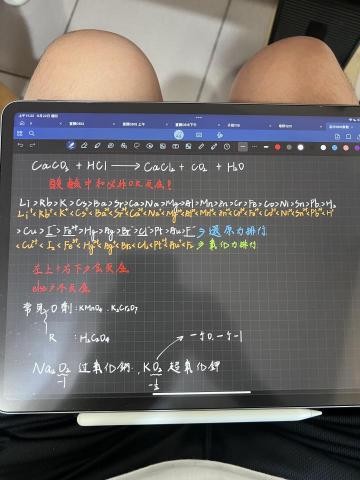 上午11:22 8月20日 週日
CaCO₃ + HCl → CaCl₂ + CO₂ + H₂O
酸鹼中和以外OR反應!
Li>Rb>K>Cs>Ba>Sr>Ca>Na>Mg>Al>Mn>Zn>Cr>Fe>Co>Ni>Sn>Pb>H₂
Li⁺<Rb⁺<K⁺<Cs⁺<Ba²⁺<Sr²⁺<Ca²⁺<Na⁺<Mg²⁺<Al³⁺<Mn²⁺<Zn²⁺<Cr³⁺<Fe²⁺<Co²⁺<Ni²⁺<Sn²⁺<Pb²⁺<H⁺
>Cu>I⁻>Fe²⁺>Hg>Ag>Br⁻>Cl⁻>Pt>Au>F⁻ → 還原力排行
<Cu²⁺<I₂<Fe³⁺<Hg²⁺<Ag⁺<Br₂<Cl₂<Pt²⁺<Au³⁺<F₂ → 氧化力排行
左上+右下→會反應
else→不反應
常見 O 劑:KMnO₄、K₂Cr₂O₇
R :H₂C₂O₄
一個0,一個-1
Na₂O₂ 過氧化鈉、KO₂ 超氧化鉀
-1 -½